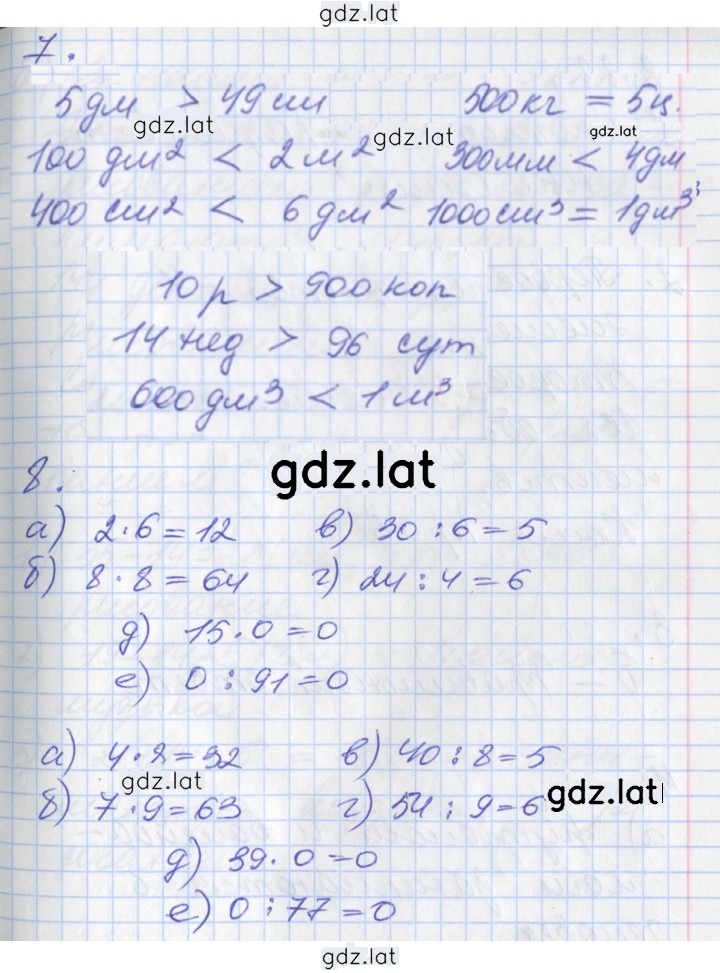 gdz.lat
7.
5 дм > 49 см 500 кг = 5 ц.
gdz.lat gdz.lat gdz.lat
100 дм² < 2 м² 300 мм < 4 дм
400 см² < 6 дм² 1000 см³ = 1 дм³
10 р > 900 коп
14 нед > 96 сут
600 дм³ < 1 м³
gdz.lat
8.
а) 2 · 6 = 12 в) 30 : 6 = 5
б) 8 · 8 = 64 г) 24 : 4 = 6
д) 15 · 0 = 0
е) 0 : 91 = 0
а) 4 · 8 = 32 в) 40 : 8 = 5
gdz.lat gdz.lat
б) 7 · 9 = 63 г) 54 : 9 = 6
д) 39 · 0 = 0
е) 0 : 77 = 0
gdz.lat